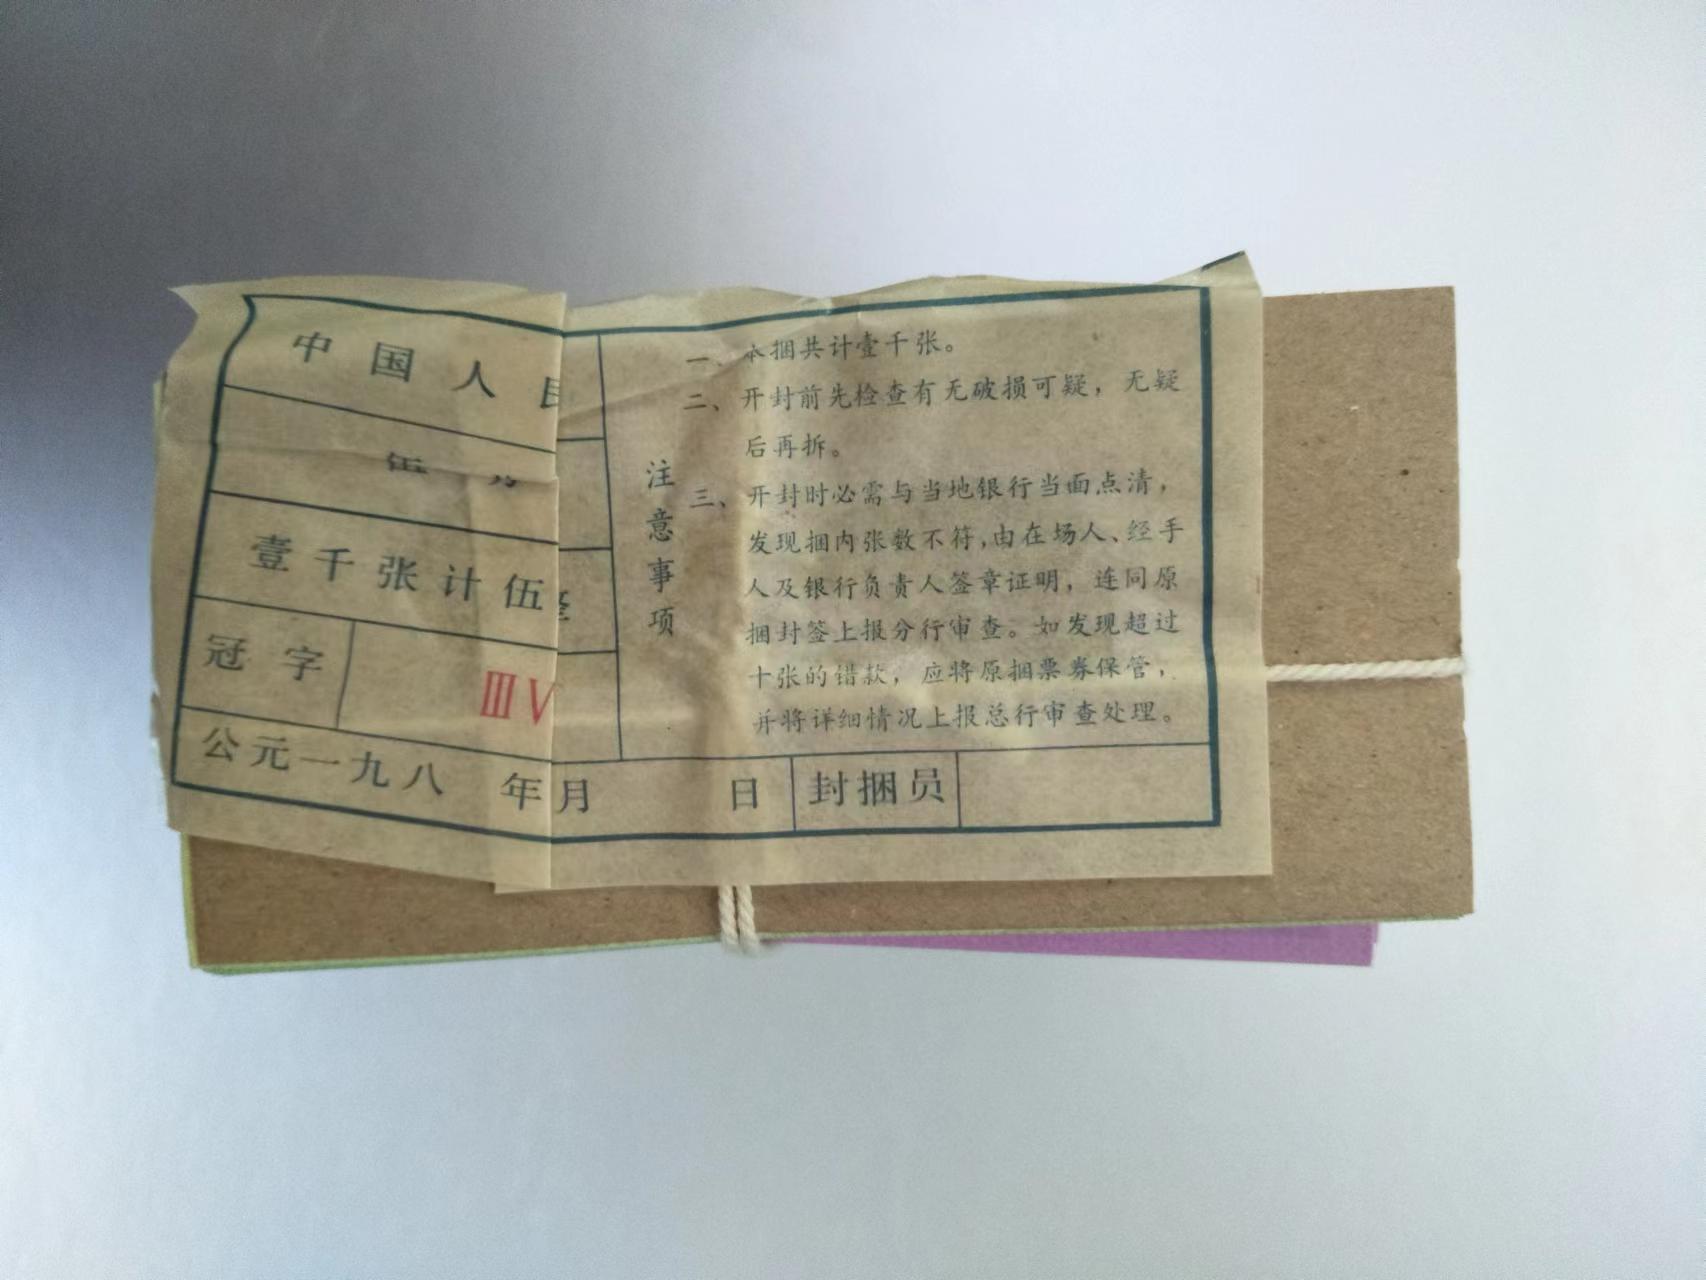 中国人民
壹千张计伍
冠字
ⅢⅤ
公元一九八 年月 日
封捆员
注意事项
一、本捆共计壹千张。
二、开封前先检查有无破损可疑，无疑
后再拆。
三、开封时必需与当地银行当面点清，
发现捆内张数不符，由在场人、经手
人及银行负责人签章证明，连同原
捆封签上报分行审查。如发现超过
十张的错款，应将原捆票券保管，
并将详细情况上报总行审查处理。